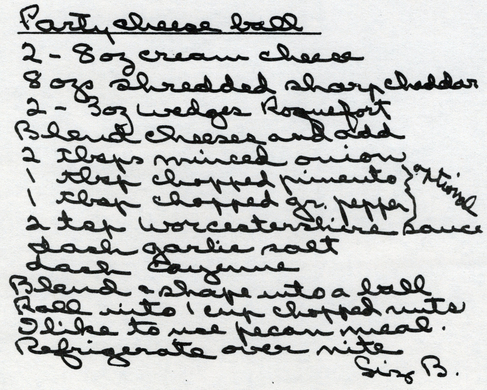 Party cheese ball
2 - 8 oz cream cheese
8 ozs shredded sharp cheddar
2 - 3oz wedges Roquefort
Blend cheeses and add
2 tbsps minced onion
1 tbsp chopped pimento
1 tbsp chopped gr. pepper } optional
2 tsp worcestershire sauce
dash garlic salt
dash Cayenne
Blend & shape into a ball
Roll into 1 cup chopped nuts
I like to use pecan meal.
Refrigerate over nite
Siz B.